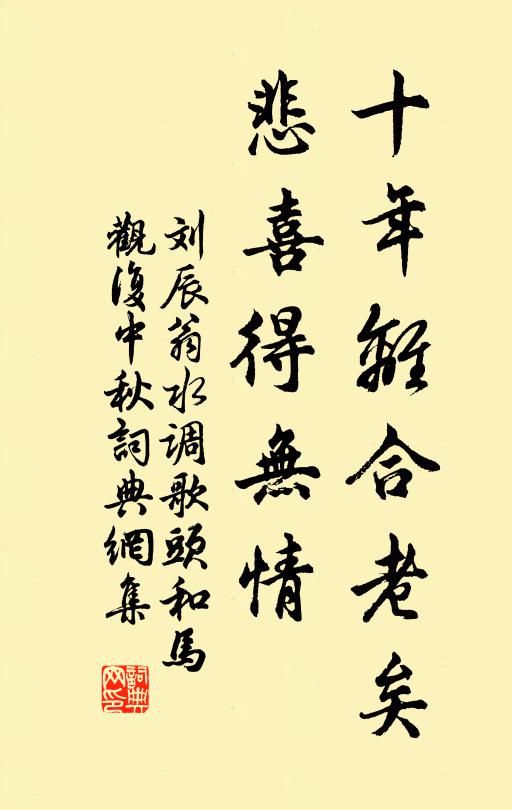 十年離合老矣
悲喜得無情
刘辰翁水调歌頭和馬
觀復中秋詞典網集
詞典
网印